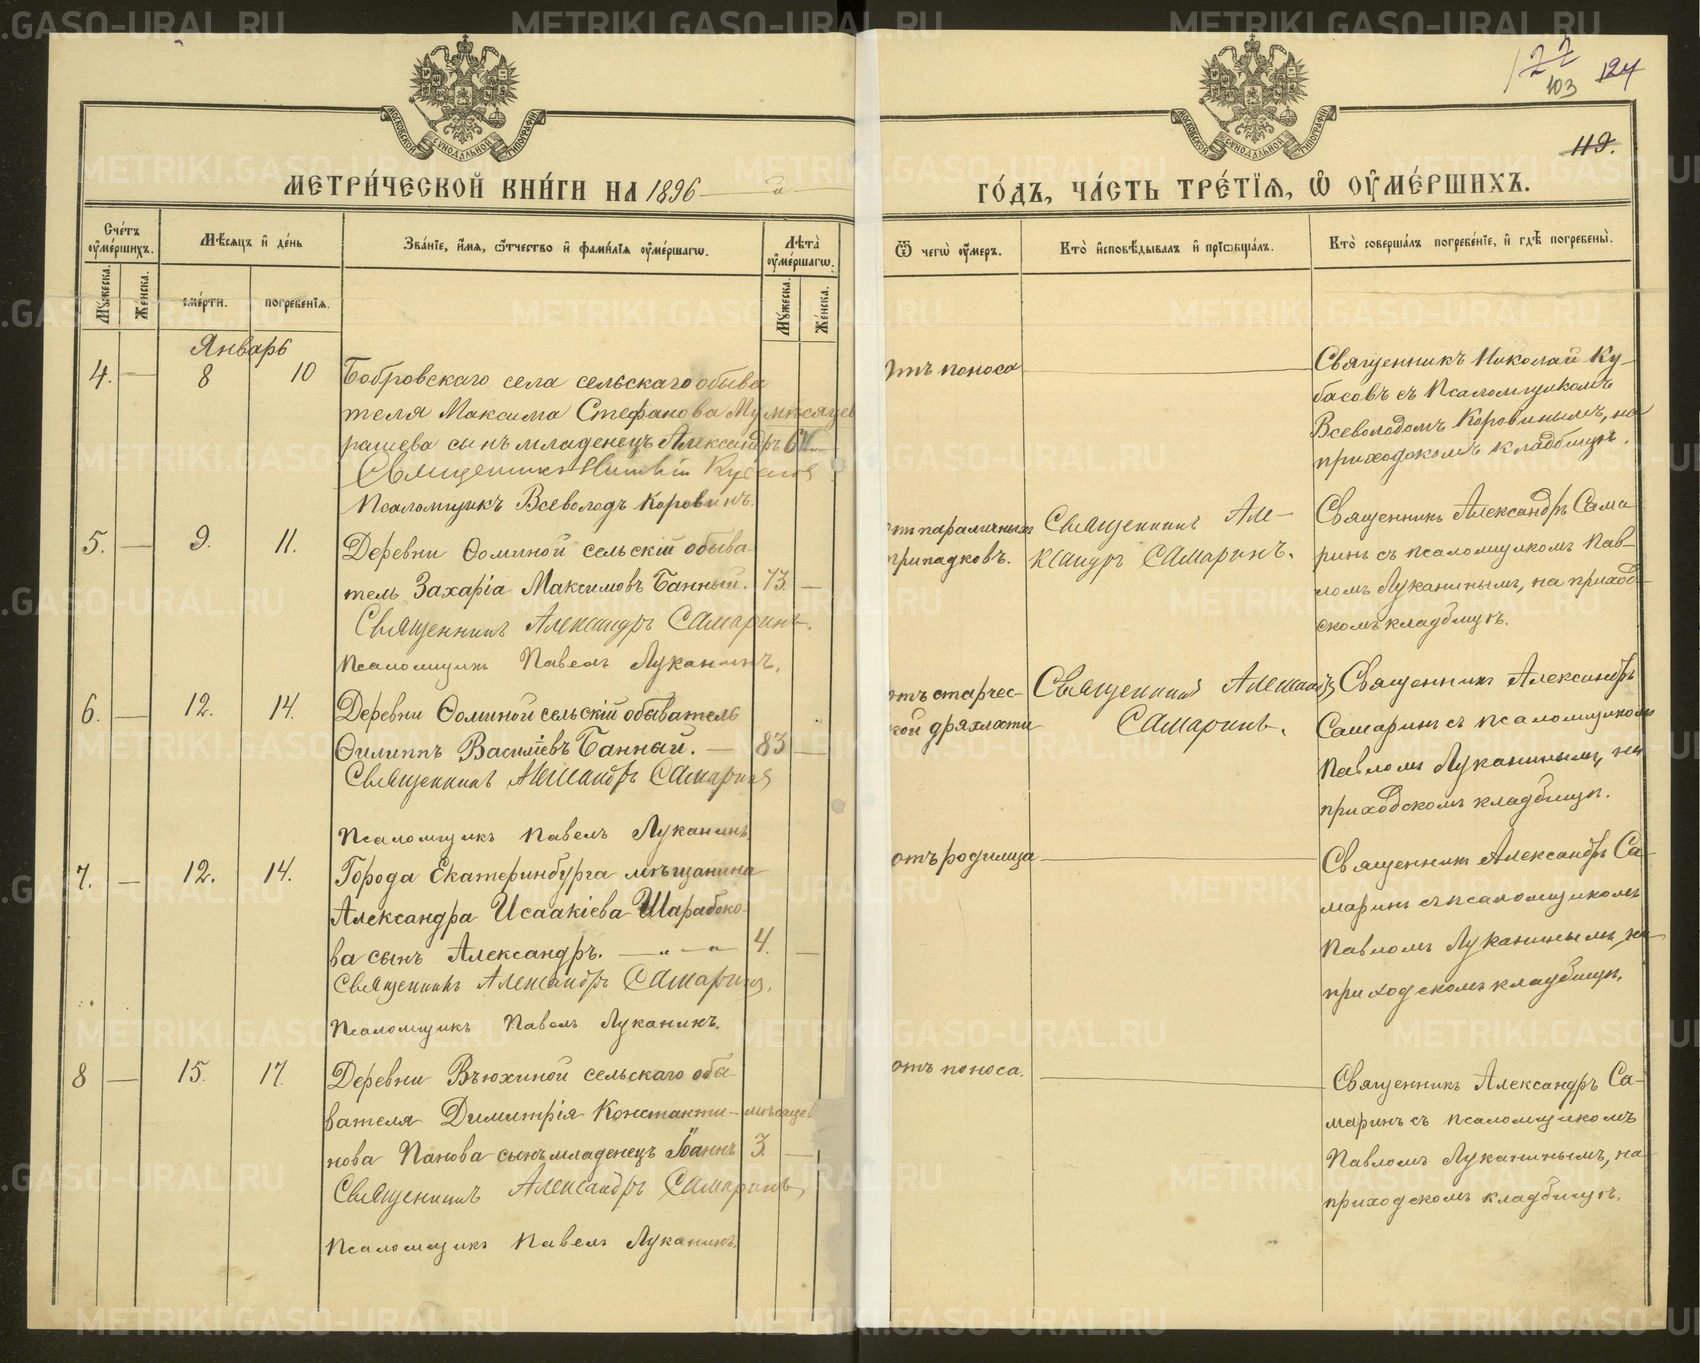 METRIKI.GASO-URAL.RU
122
103
124
119.
МОСКОВСКОЙ СѴНОДАЛЬНОЙ ТИПОГРАФІИ
МЕТРИ́ЧЕСКОЙ КНИ́ГИ НА 1896
ГО́ДЪ, ЧА́СТЬ ТРЕ́ТЇѦ, Ѡ҆ ОУ҆МЕ́РШИХЪ.
Сче́тъ оу҆ме́ршихъ.
Мѣ́сяцъ и҆ де́нь
Зва́нїе, и҆́мя, ѻ҆́тчество и҆ фами́лїя оу҆ме́ршагѡ.
Лѣ́та оу҆ме́ршагѡ.
Ѿ чегѡ̀ оу҆́меръ.
Кто̀ и҆сповѣ́дывалъ и҆ прїѡбща́лъ.
Кто̀ соверша́лъ погребе́нїе, и҆ гдѣ̀ погребены̀.
Мꙋ́жеска.
Же́нска.
сме́рти.
погребе́нїя.
Мꙋ́жеска.
Же́нска.
Январь
4. — 8 10
Бобровскаго села сельскаго обыва
теля Максима Стефанова Му мѣсяцев
рашева сынъ младенецъ Александръ 6
Священникъ Николай Кубасов
Псаломщикъ Всеволодъ Коровинъ.
отъ поноса
Священникъ Николай Ку-
басовъ съ Псаломщикомъ
Всеволодомъ Коровинымъ, на
приходскомъ кладбищѣ.
5. — 9. 11.
Деревни Ѳоминой сельскій обыва-
тель Захарія Максимовъ Банный. 73. —
Священникъ Александръ Самаринъ.
Псаломщикъ Павелъ Луканинъ.
отъ параличныхъ
припадковъ.
Священникъ Але-
ксандръ Самаринъ.
Священникъ Александръ Сама
ринъ съ псаломщикомъ Пав-
ломъ Луканинымъ, на приход-
скомъ кладбищѣ.
6. — 12. 14.
Деревни Ѳоминой сельскій обыватель
Филиппъ Васильевъ Банный. — 83 —
Священникъ Александръ Самаринъ
Псаломщикъ Павелъ Луканинъ
отъ старчес-
кой дряхлости
Священникъ Александръ
Самаринъ.
Священникъ Александръ
Самаринъ съ псаломщикомъ
Павломъ Луканинымъ, на
приходскомъ кладбищѣ.
7. — 12. 14.
Города Екатеринбурга мѣщанина
Александра Исаакіева Шарабоко-
ва сынъ Александръ. — „ — „ — 4. —
Священникъ Александръ Самаринъ.
Псаломщикъ Павелъ Луканинъ.
отъ родимца
Священникъ Александръ Са-
маринъ съ псаломщикомъ
Павломъ Луканинымъ, на
приходскомъ кладбищѣ.
8 — 15. 17.
Деревни Вьюхиной сельскаго обы-
вателя Димитрія Константи- мѣсяцев
нова Панова сынъ младенецъ Іоаннъ 3. —
Священникъ Александръ Самаринъ
Псаломщикъ Павелъ Луканинъ.
отъ поноса.
Священникъ Александръ Са-
маринъ съ псаломщикомъ
Павломъ Луканинымъ, на
приходскомъ кладбищѣ.